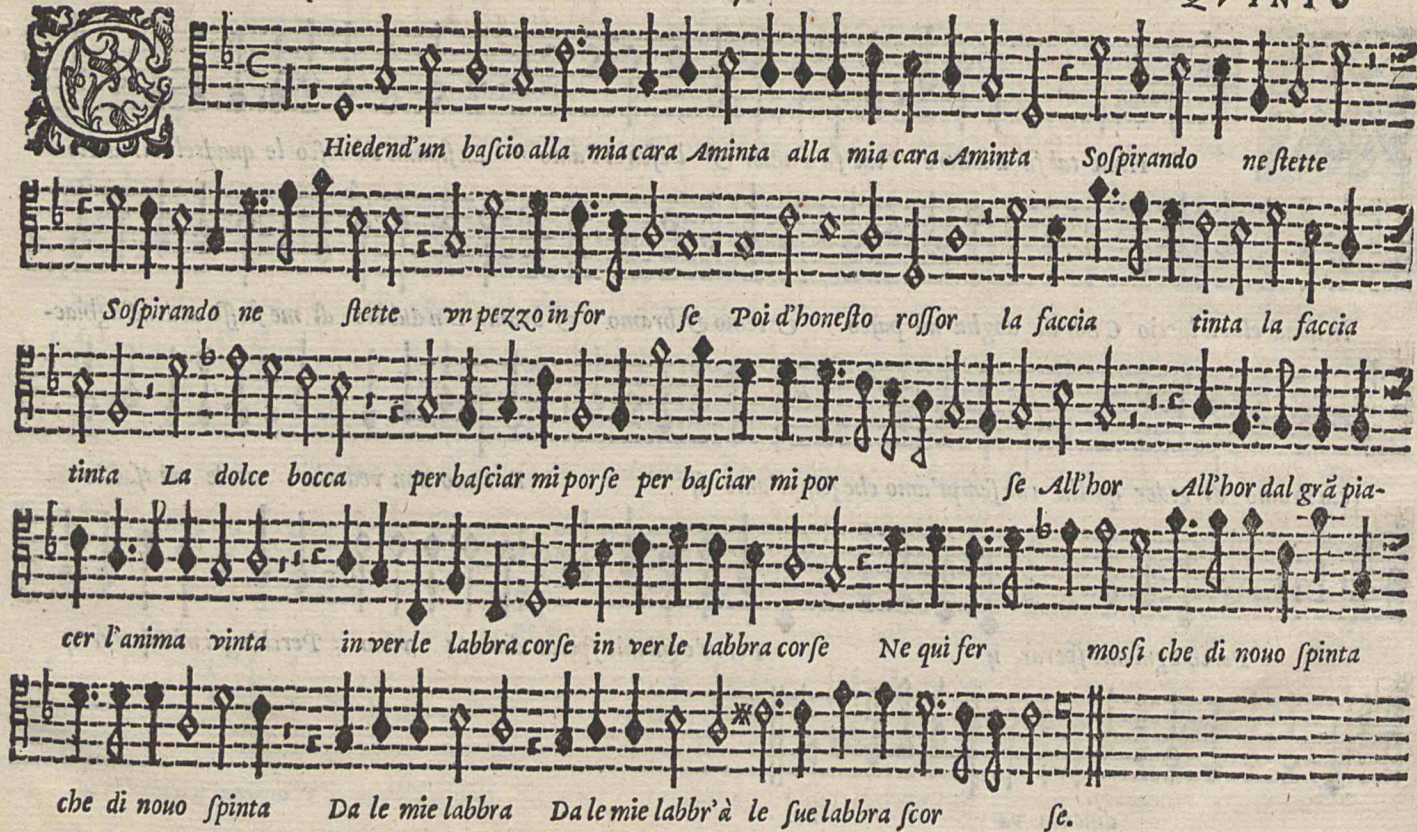 QVINTO
CHiedend'un baſcio alla mia cara Aminta alla mia cara Aminta Soſpirando ne ſtette
Soſpirando ne ſtette vn pezzo in for ſe Poi d'honeſto roſſor la faccia tinta la faccia
tinta La dolce bocca per baſciar mi porſe per baſciar mi por ſe All'hor All'hor dal grã pia-
cer l'anima vinta in ver le labbra corſe in ver le labbra corſe Ne qui fer moſsi che di nouo ſpinta
che di nouo ſpinta Da le mie labbra Da le mie labbr'à le ſue labbra ſcor ſe.